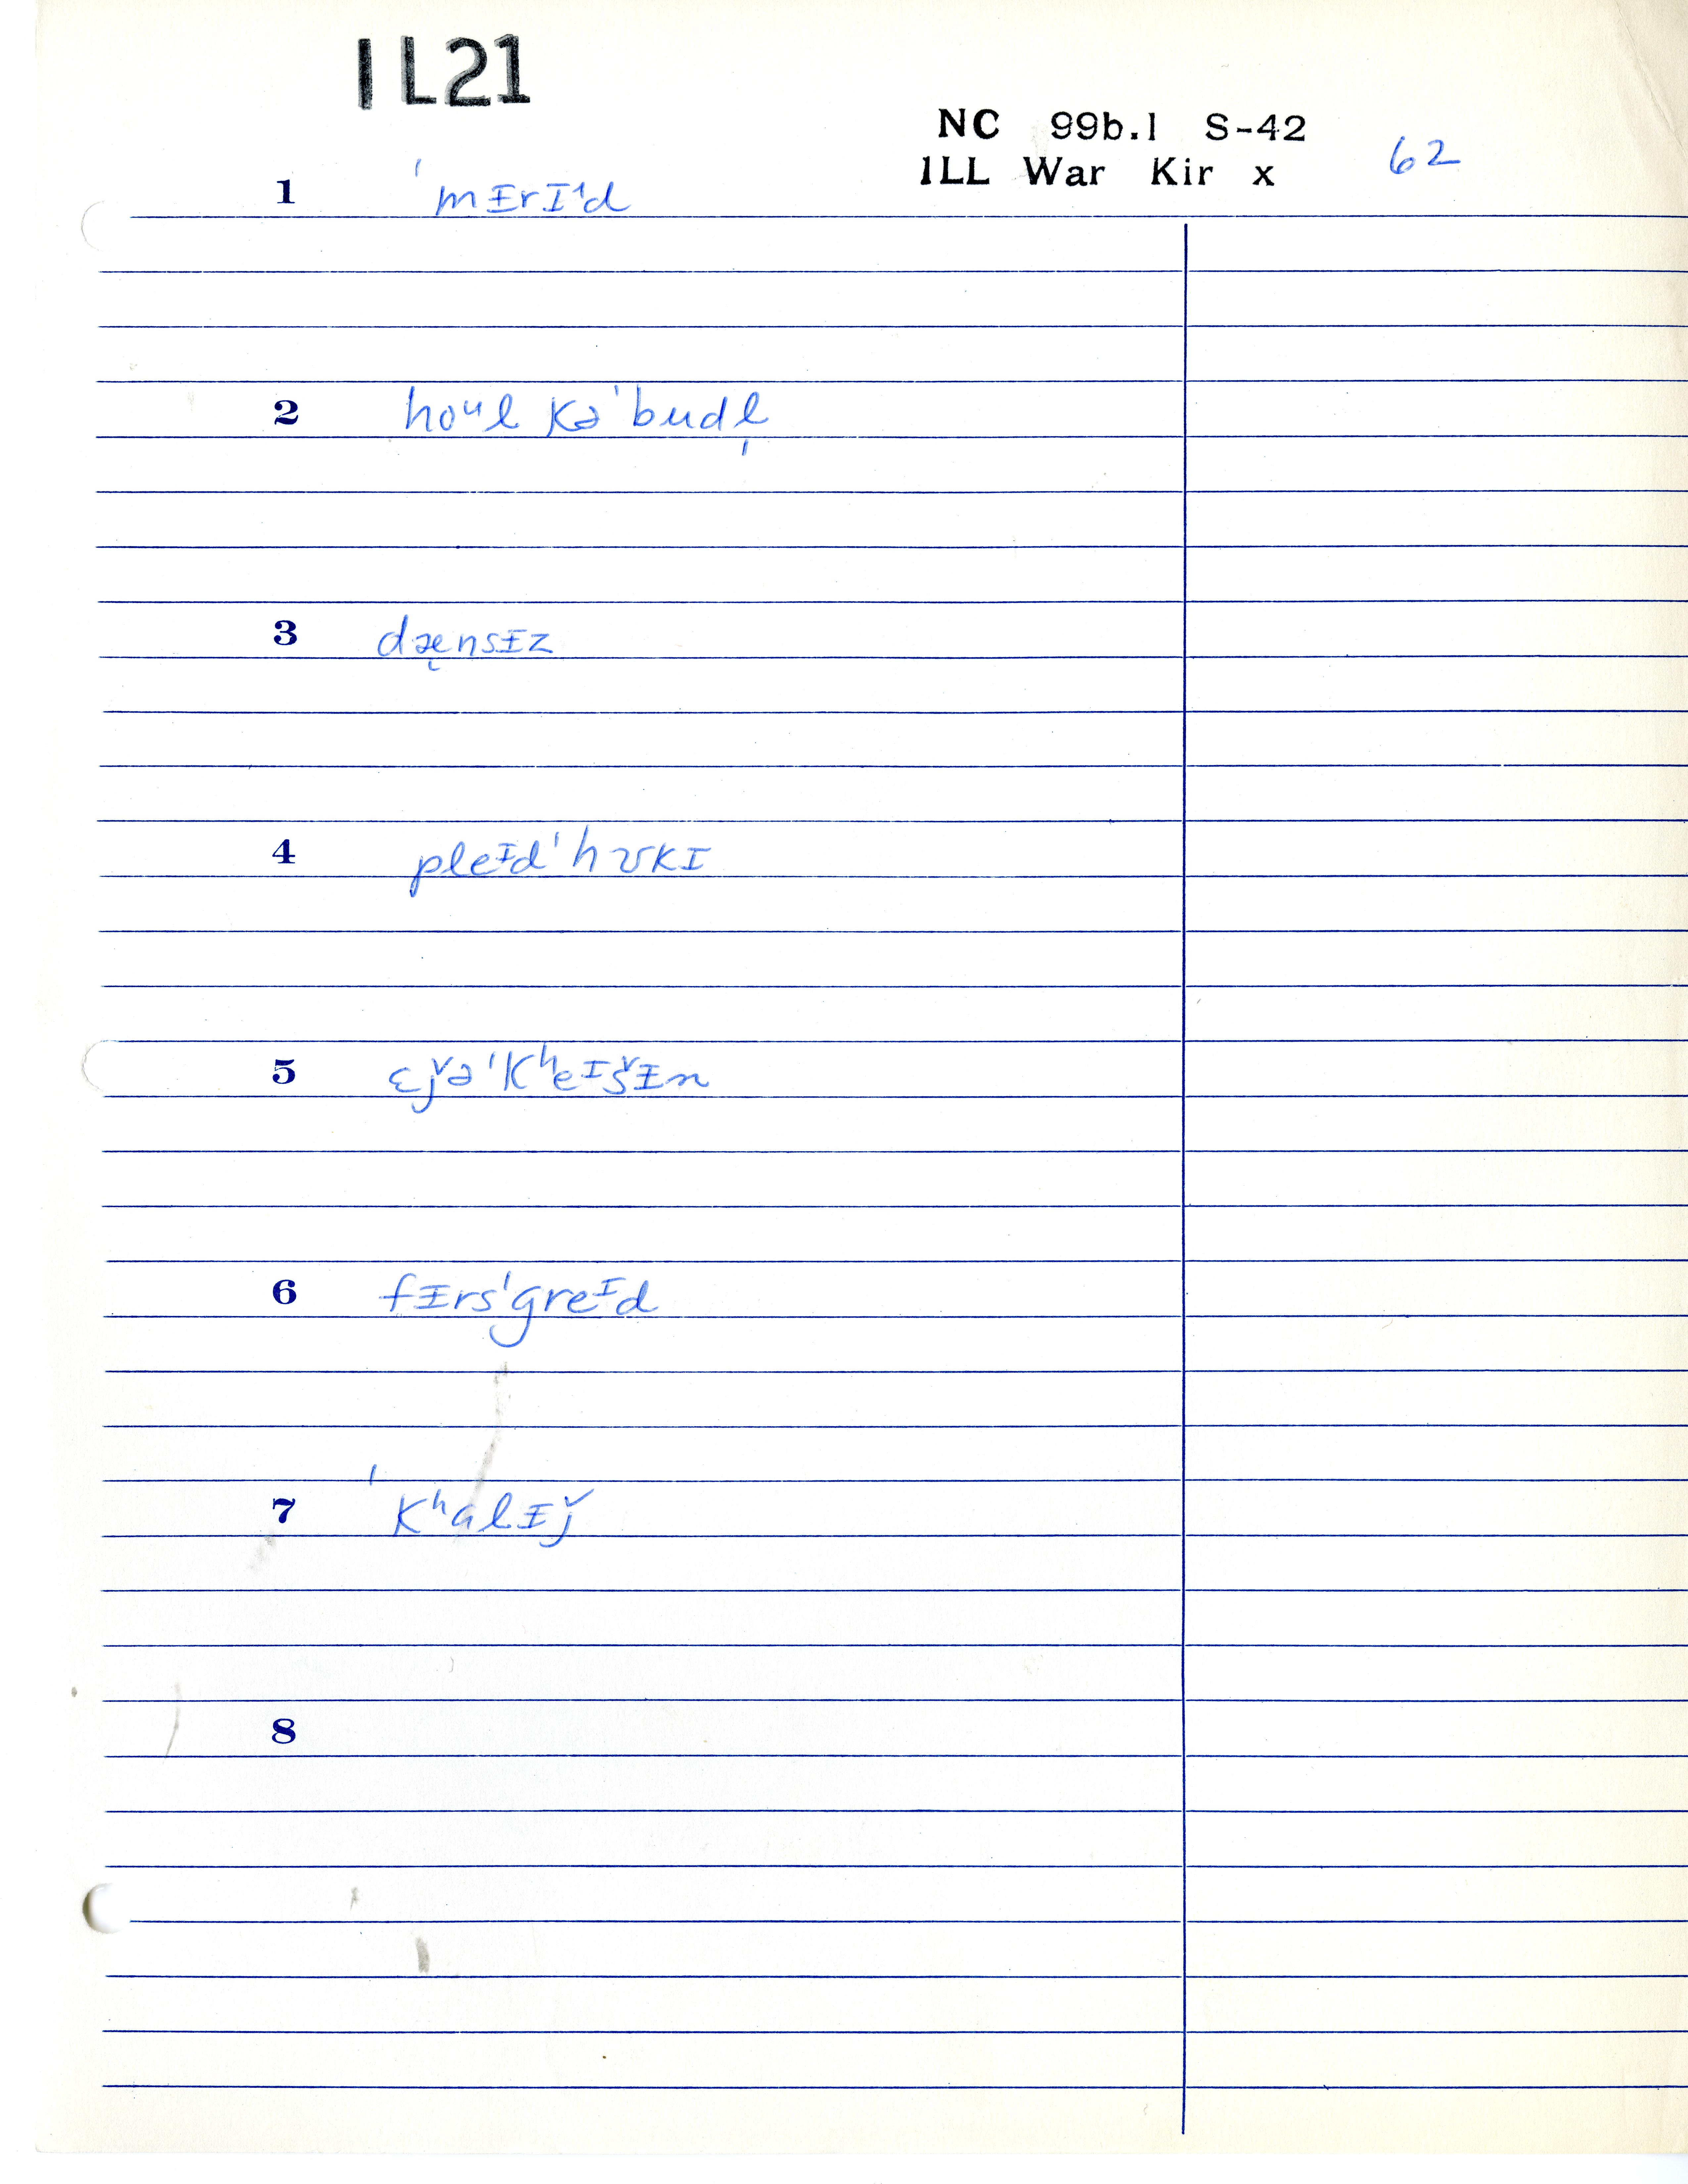 IL21
NC 99b.1 S-42
ILL War Kir x 62
1 ˈmᵻrɪᶦd
2 hoᵘl kəˈbudl̩
3 dæ̨nsᵻz
4 pleᵻdˈhʊkɪ
5 ɛǰəˈkʰeᶦšᵻn
6 fᵻrsˈgreᶦd
7 ˈkʰalᵻǰ
8